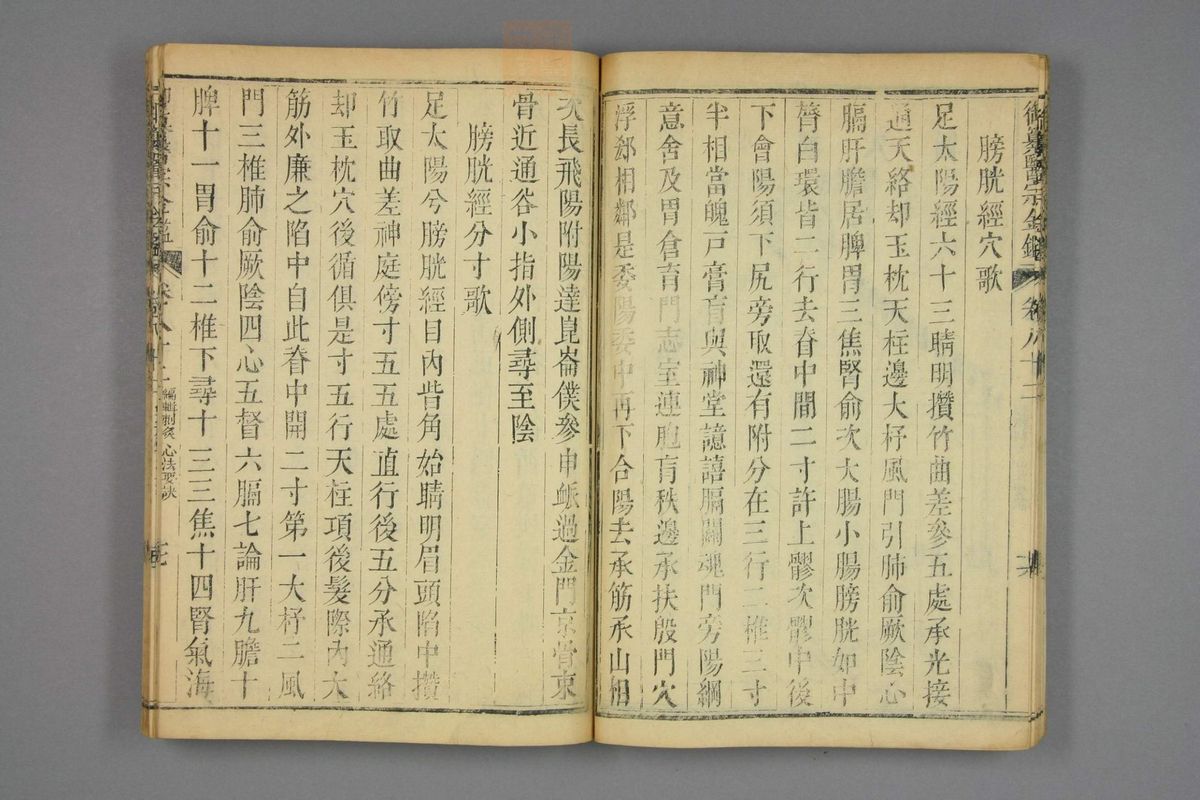 御纂醫宗金鑑 卷八十二
膀胱經穴歌
足太陽經六十三睛明攢竹曲差參五處承光接
通天絡却玉枕天柱邊大杼風門引肺俞厥陰心
膈肝膽居脾胃三焦腎俞次大腸小腸膀胱如中
膂白環皆二行去脊中間二寸許上髎次髎中後
下會陽須下尻旁取還有附分在三行二椎三寸
半相當魄戸膏肓與神堂譩譆膈關魂門旁陽綱
意舍及胃倉肓門志室連胞肓秩邊承扶殷門穴
浮郄相鄰是委陽委中再下合陽去承筋承山相
次長飛陽附陽達崑崙僕參申脈過金門京骨束
骨近通谷小指外側尋至陰
膀胱經分寸歌
足太陽兮膀胱經目內眥角始睛明眉頭陷中攢
竹取曲差神庭傍寸五五處直行後五分承通絡
却玉枕穴後循俱是寸五行天柱項後髮際內大
筋外廉之陷中自此脊中開二寸第一大杼二風
門三椎肺俞厥陰四心五督六膈七論肝九膽十
脾十一胃俞十二椎下尋十三三焦十四腎氣海
編輯刺灸心法要訣